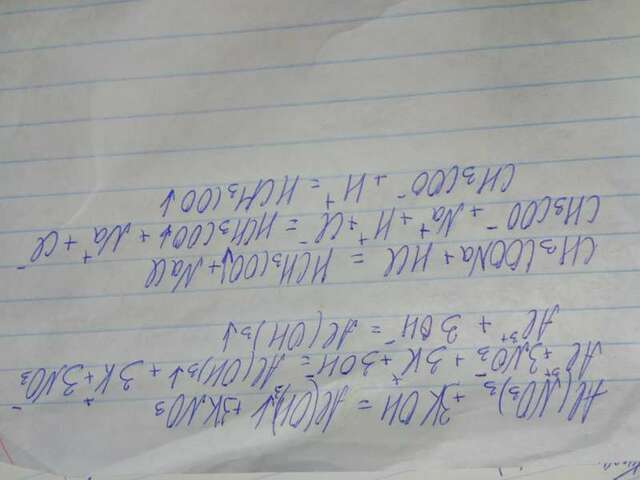 Al(NO₃)₃ + 3KOH = Al(OH)₃↓ + 3KNO₃
Al³⁺ + 3NO₃⁻ + 3K⁺ + 3OH⁻ = Al(OH)₃↓ + 3K⁺ + 3NO₃⁻
Al³⁺ + 3OH⁻ = Al(OH)₃↓
CH₃COONa + HCl = HCH₃COO↓ + NaCl
CH₃COO⁻ + Na⁺ + H⁺ + Cl⁻ = HCH₃COO↓ + Na⁺ + Cl⁻
CH₃COO⁻ + H⁺ = HCH₃COO↓